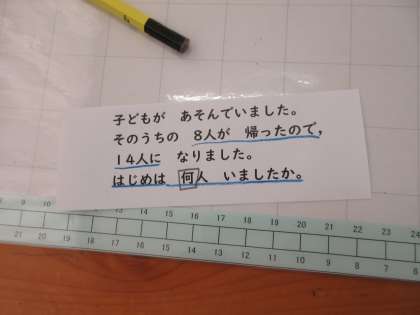 子どもが あそんでいました。
そのうちの 8人が 帰ったので,
14人に なりました。
はじめは 何人 いましたか。
9 10 13 14 15 16 17 18 19 20 21 22 23 24
21 20 16 15 14 13 12 11 10 9 8 7 6